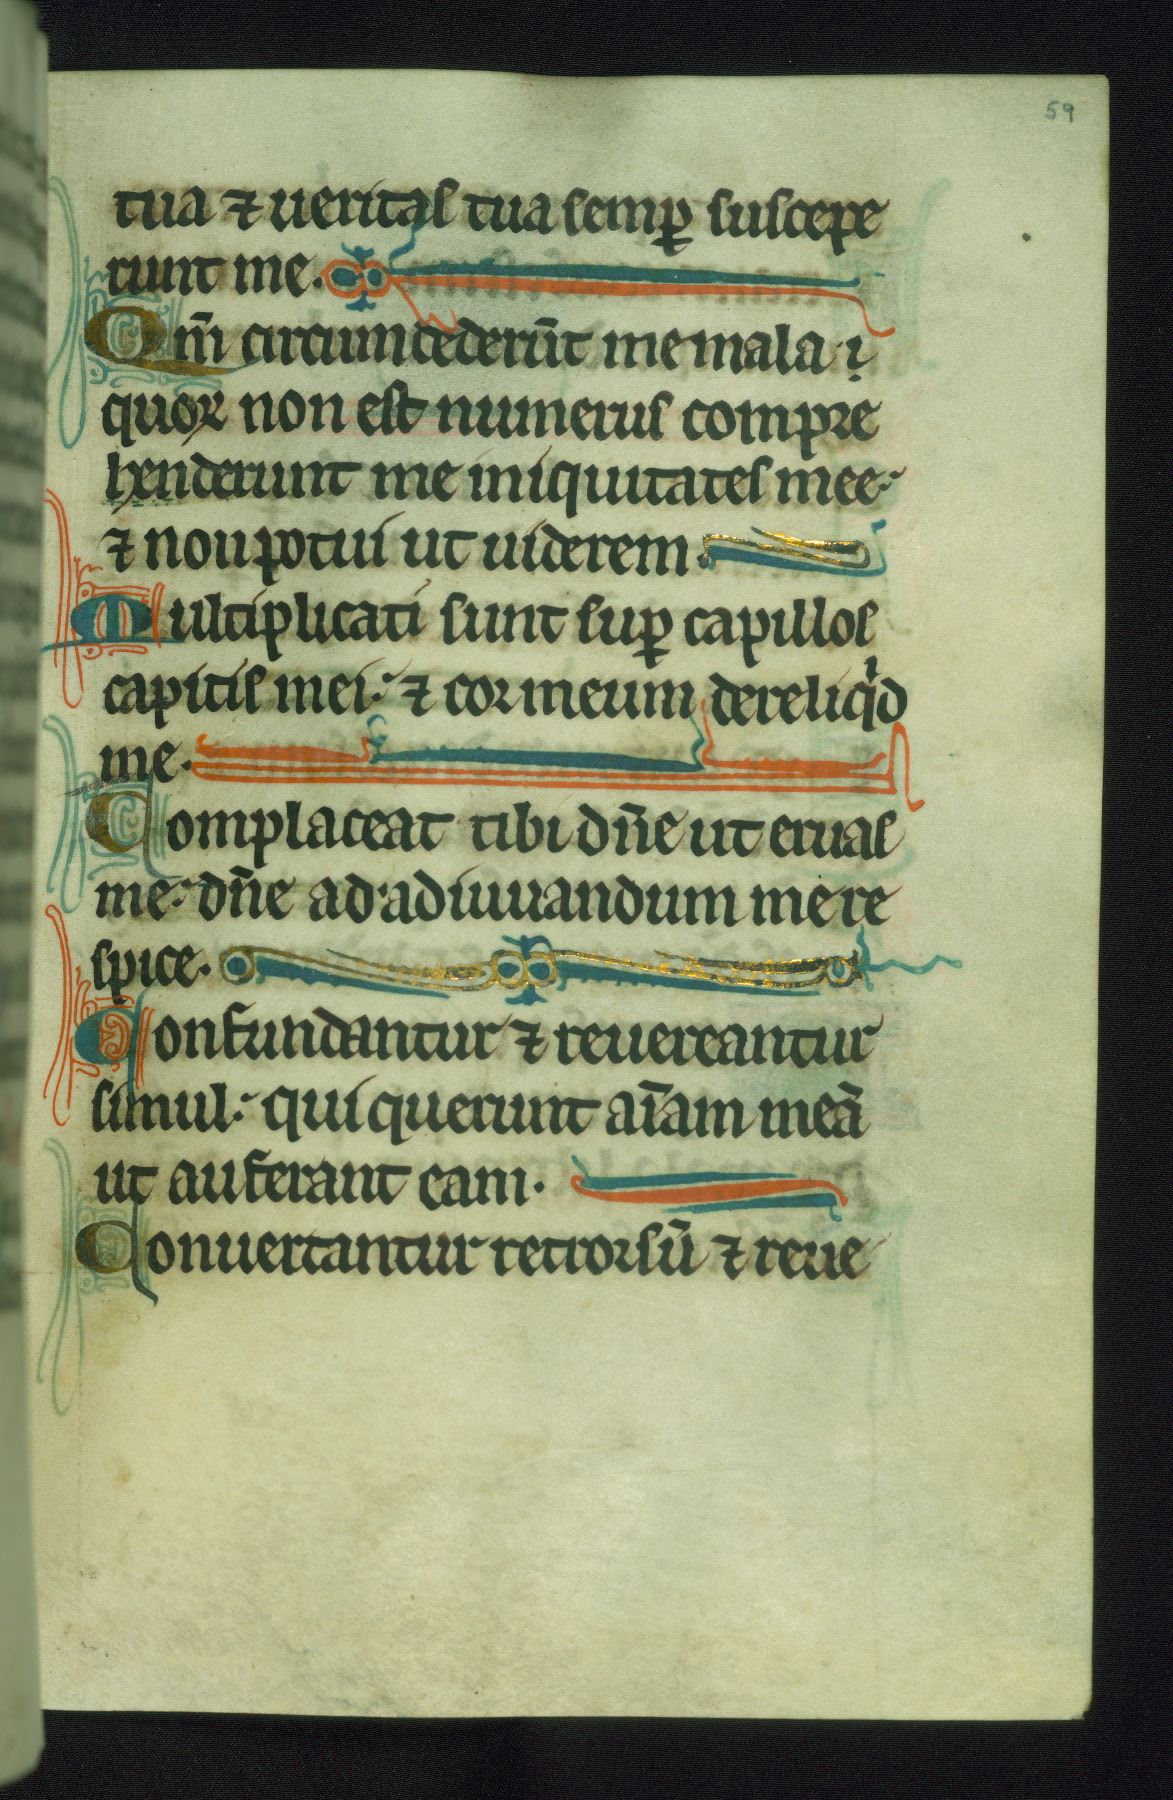 59
tua ⁊ ueritas tua semꝑ suscepe
runt me.
Qm̅ circumdederūt me mala ı̣
quoꝝ non est numerus compre
henderunt me iniquitates mee:
⁊ non potui ut uiderem.
Multiplicati sunt suꝑ capillos
capitis mei: ⁊ cor meum dereliqͥd
me.
Complaceat tibi dn̅e ut eruas
me: dn̅e ad adiuuandum me re
spice.
Confundantur ⁊ reuereantur
simul: qui querunt aı̅am meā
ut auferant eam.
Conuertantur retrorsū ⁊ reue